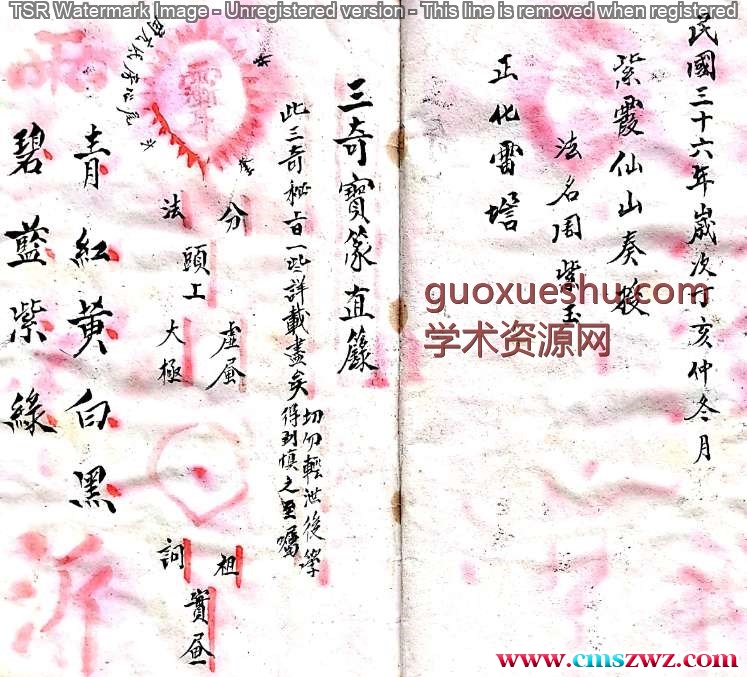 TSR Watermark Image - Unregistered version - This line is removed when registered
民國三十六年歲次丁亥仲冬月
紫霞仙山奏
法名周紫玉
正化雷壇
guoxueshu.com
学术资源网
三奇寶篆直籙
此三奇秘旨一些詳載盡矣
切勿輕泄後學
得到慎之至囑
分 虛
頭工
法 大極
祖
實
詞
青紅黄白黑
碧藍紫綠
www.cmszwz.com